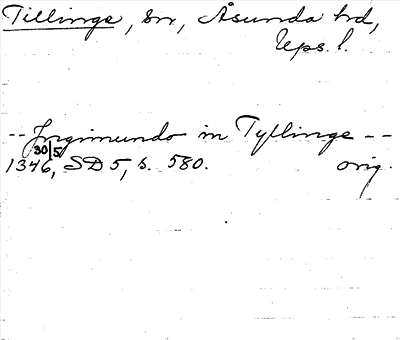 Tillinge, sn, Åsunda hd,
Ups. l.
-- Jngimundo in Tyllinge --
30/5
1346, SD 5, s. 580. orig.